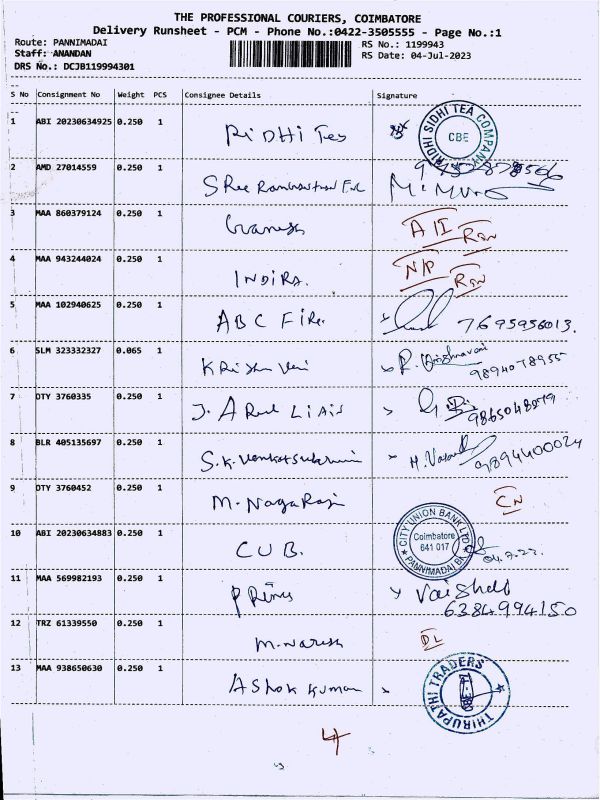 THE PROFESSIONAL COURIERS, COIMBATORE
Delivery Runsheet - PCM - Phone No.:0422-3505555 - Page No.:1
Route: PANNIMADAI
Staff: ANANDAN
DRS No.: DCJB119994301
RS No.: 1199943
RS Date: 04-Jul-2023
S No Consignment No Weight PCS Consignee Details Signature
1 ABI 20230634925 0.250 1 RiDHi Tea
RIDHI SIDHI TEA COMPANY
CBE
2 AMD 27014559 0.250 1 SRee
3 MAA 860379124 0.250 1 Ganesh
4 MAA 943244024 0.250 1 INDiRA. N/P
5 MAA 102940625 0.250 1 ABC FiRe. 7695956013.
6 SLM 323332327 0.065 1 KRishna Veni R. Krishnaveni
9894078955
7 DTY 3760335 0.250 1 J. ARul
8 BLR 405135697 0.250 1 S.K. H. 9894400024
9 DTY 3760452 0.250 1 M. NagaRaj CN
10 ABI 20230634883 0.250 1 CUB.
CITY UNION BANK LTD
Coimbatore
641 017
PANNIMADAI BR
11 MAA 569982193 0.250 1 PRims
6384994150
12 TRZ 61339550 0.250 1 M. Naresh DL
13 MAA 938650630 0.250 1 AShok kumar
THIRUPATHI TRADERS
4